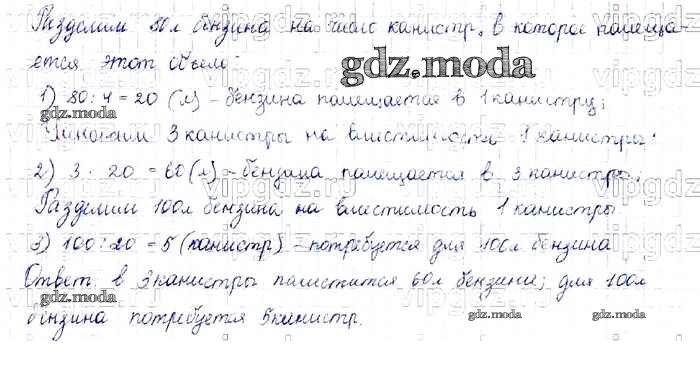 Разделим 80л бензина на число канистр, в которое помеща-
ется этот объем:
1) 80 : 4 = 20 (л) - бензина помещается в 1 канистру;
Умножим 3 канистры на вместимость 1 канистры:
2) 3 · 20 = 60 (л) - бензина помещается в 3 канистры.
Разделим 100л бензина на вместимость 1 канистры
3) 100 : 20 = 5 (канистр) - потребуется для 100л бензина
Ответ: в 3 канистры поместится 60л бензина; для 100л
бензина потребуется 5 канистр.
gdz.moda
gdz.moda
gdz.moda
gdz.moda
gdz.moda
gdz.moda
vipgdz.ru